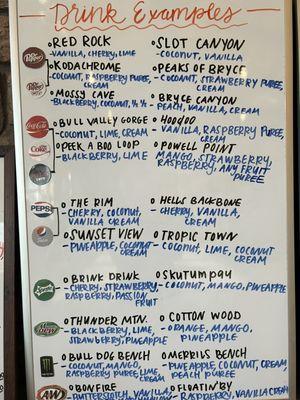 Drink Examples
Dr Pepper
RED ROCK
-VANILLA, CHERRY, LIME
KODACHROME
-COCONUT, RASPBERRY PUREE, CREAM
MOSSY CAVE
-BLACKBERRY, COCONUT, ½ ½
SLOT CANYON
-COCONUT, VANILLA
PEAKS OF BRYCE
-COCONUT, STRAWBERRY PUREE, CREAM
BRYCE CANYON
PEACH, VANILLA, CREAM
Coca-Cola
Coke
BULL VALLEY GORGE
-COCONUT, LIME, CREAM
PEEK A BOO LOOP
-BLACKBERRY, LIME
HOODOO
-VANILLA, RASPBERRY PUREE, CREAM
POWELL POINT
MANGO, STRAWBERRY,
RASPBERRY, ANY FRUIT
PUREE
PEPSI
THE RIM
-CHERRY, COCONUT,
VANILLA CREAM
SUNSET VIEW
-PINEAPPLE, COCONUT
CREAM
HELLS BACKBONE
-CHERRY, VANILLA,
CREAM
TROPIC TOWN
-COCONUT, LIME, COCONUT
CREAM
BRINK DRINK
-CHERRY, STRAWBERRY,
RASPBERRY, PASSION
FRUIT
SKUTUMPAH
-COCONUT, MANGO, PINEAPPLE
THUNDER MTN.
-BLACKBERRY, LIME,
STRAWBERRY, PINEAPPLE
COTTON WOOD
-ORANGE, MANGO,
PINEAPPLE
BULL DOG BENCH
-COCONUT, MANGO,
RASPBERRY PUREE, LIME
CREAM
MERRILS BENCH
-PINEAPPLE, COCONUT, CREAM,
PEACH PUREE
A&W
BONFIRE
BUTTERSCOTCH, VANILLA
FLOATIN' BY
-RASPBERRY, VANILLA CREAM